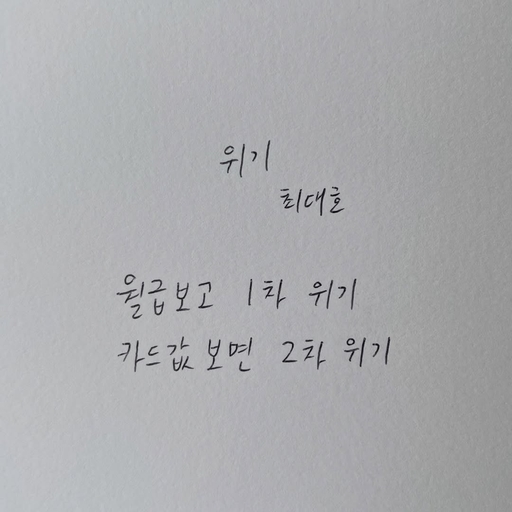 위기
최대호
월급보고 1차 위기
카드값 보면 2차 위기